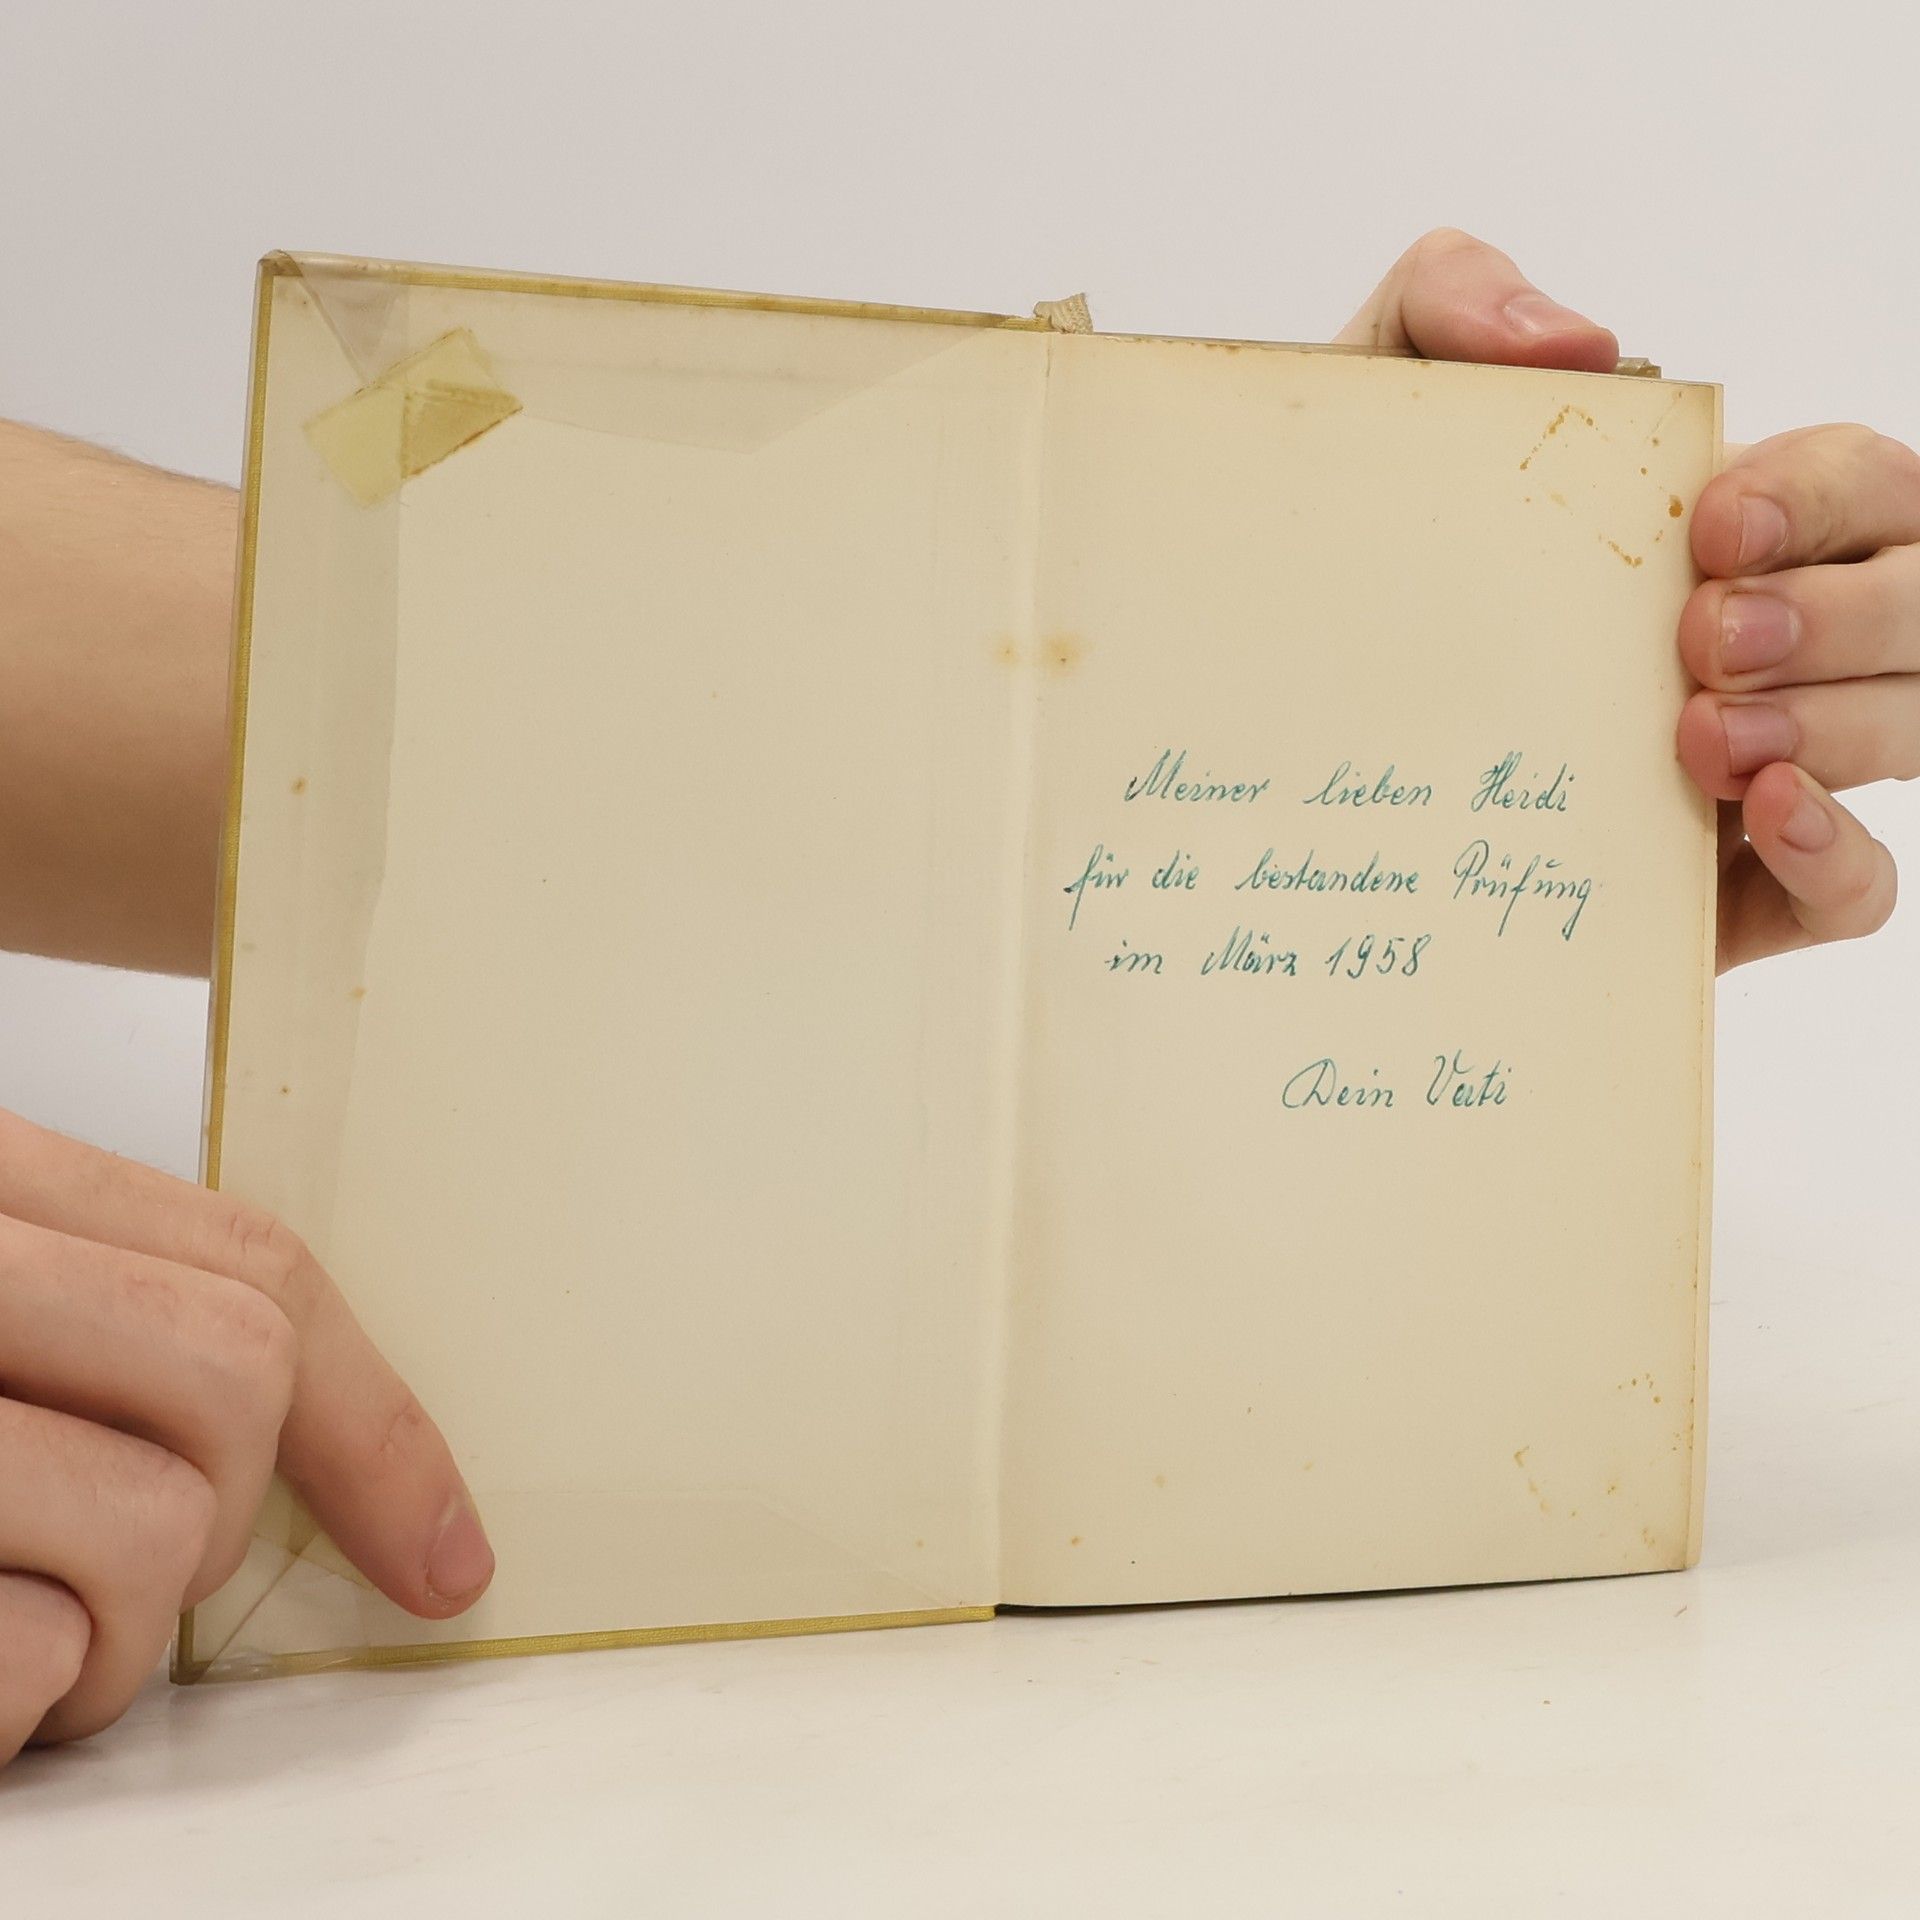 Meiner lieben Heidi
für die bestandene Prüfung
im März 1958
Dein Vati